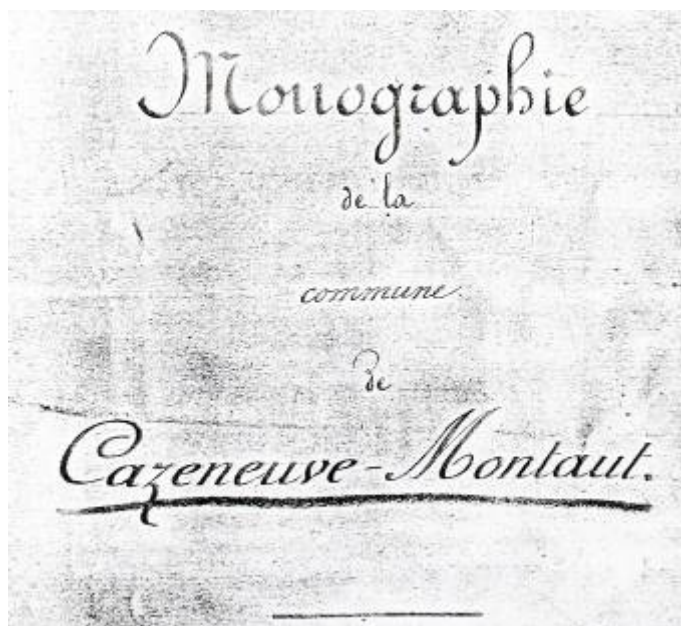 Monographie
de la
commune
de
Cazeneuve-Montaut.